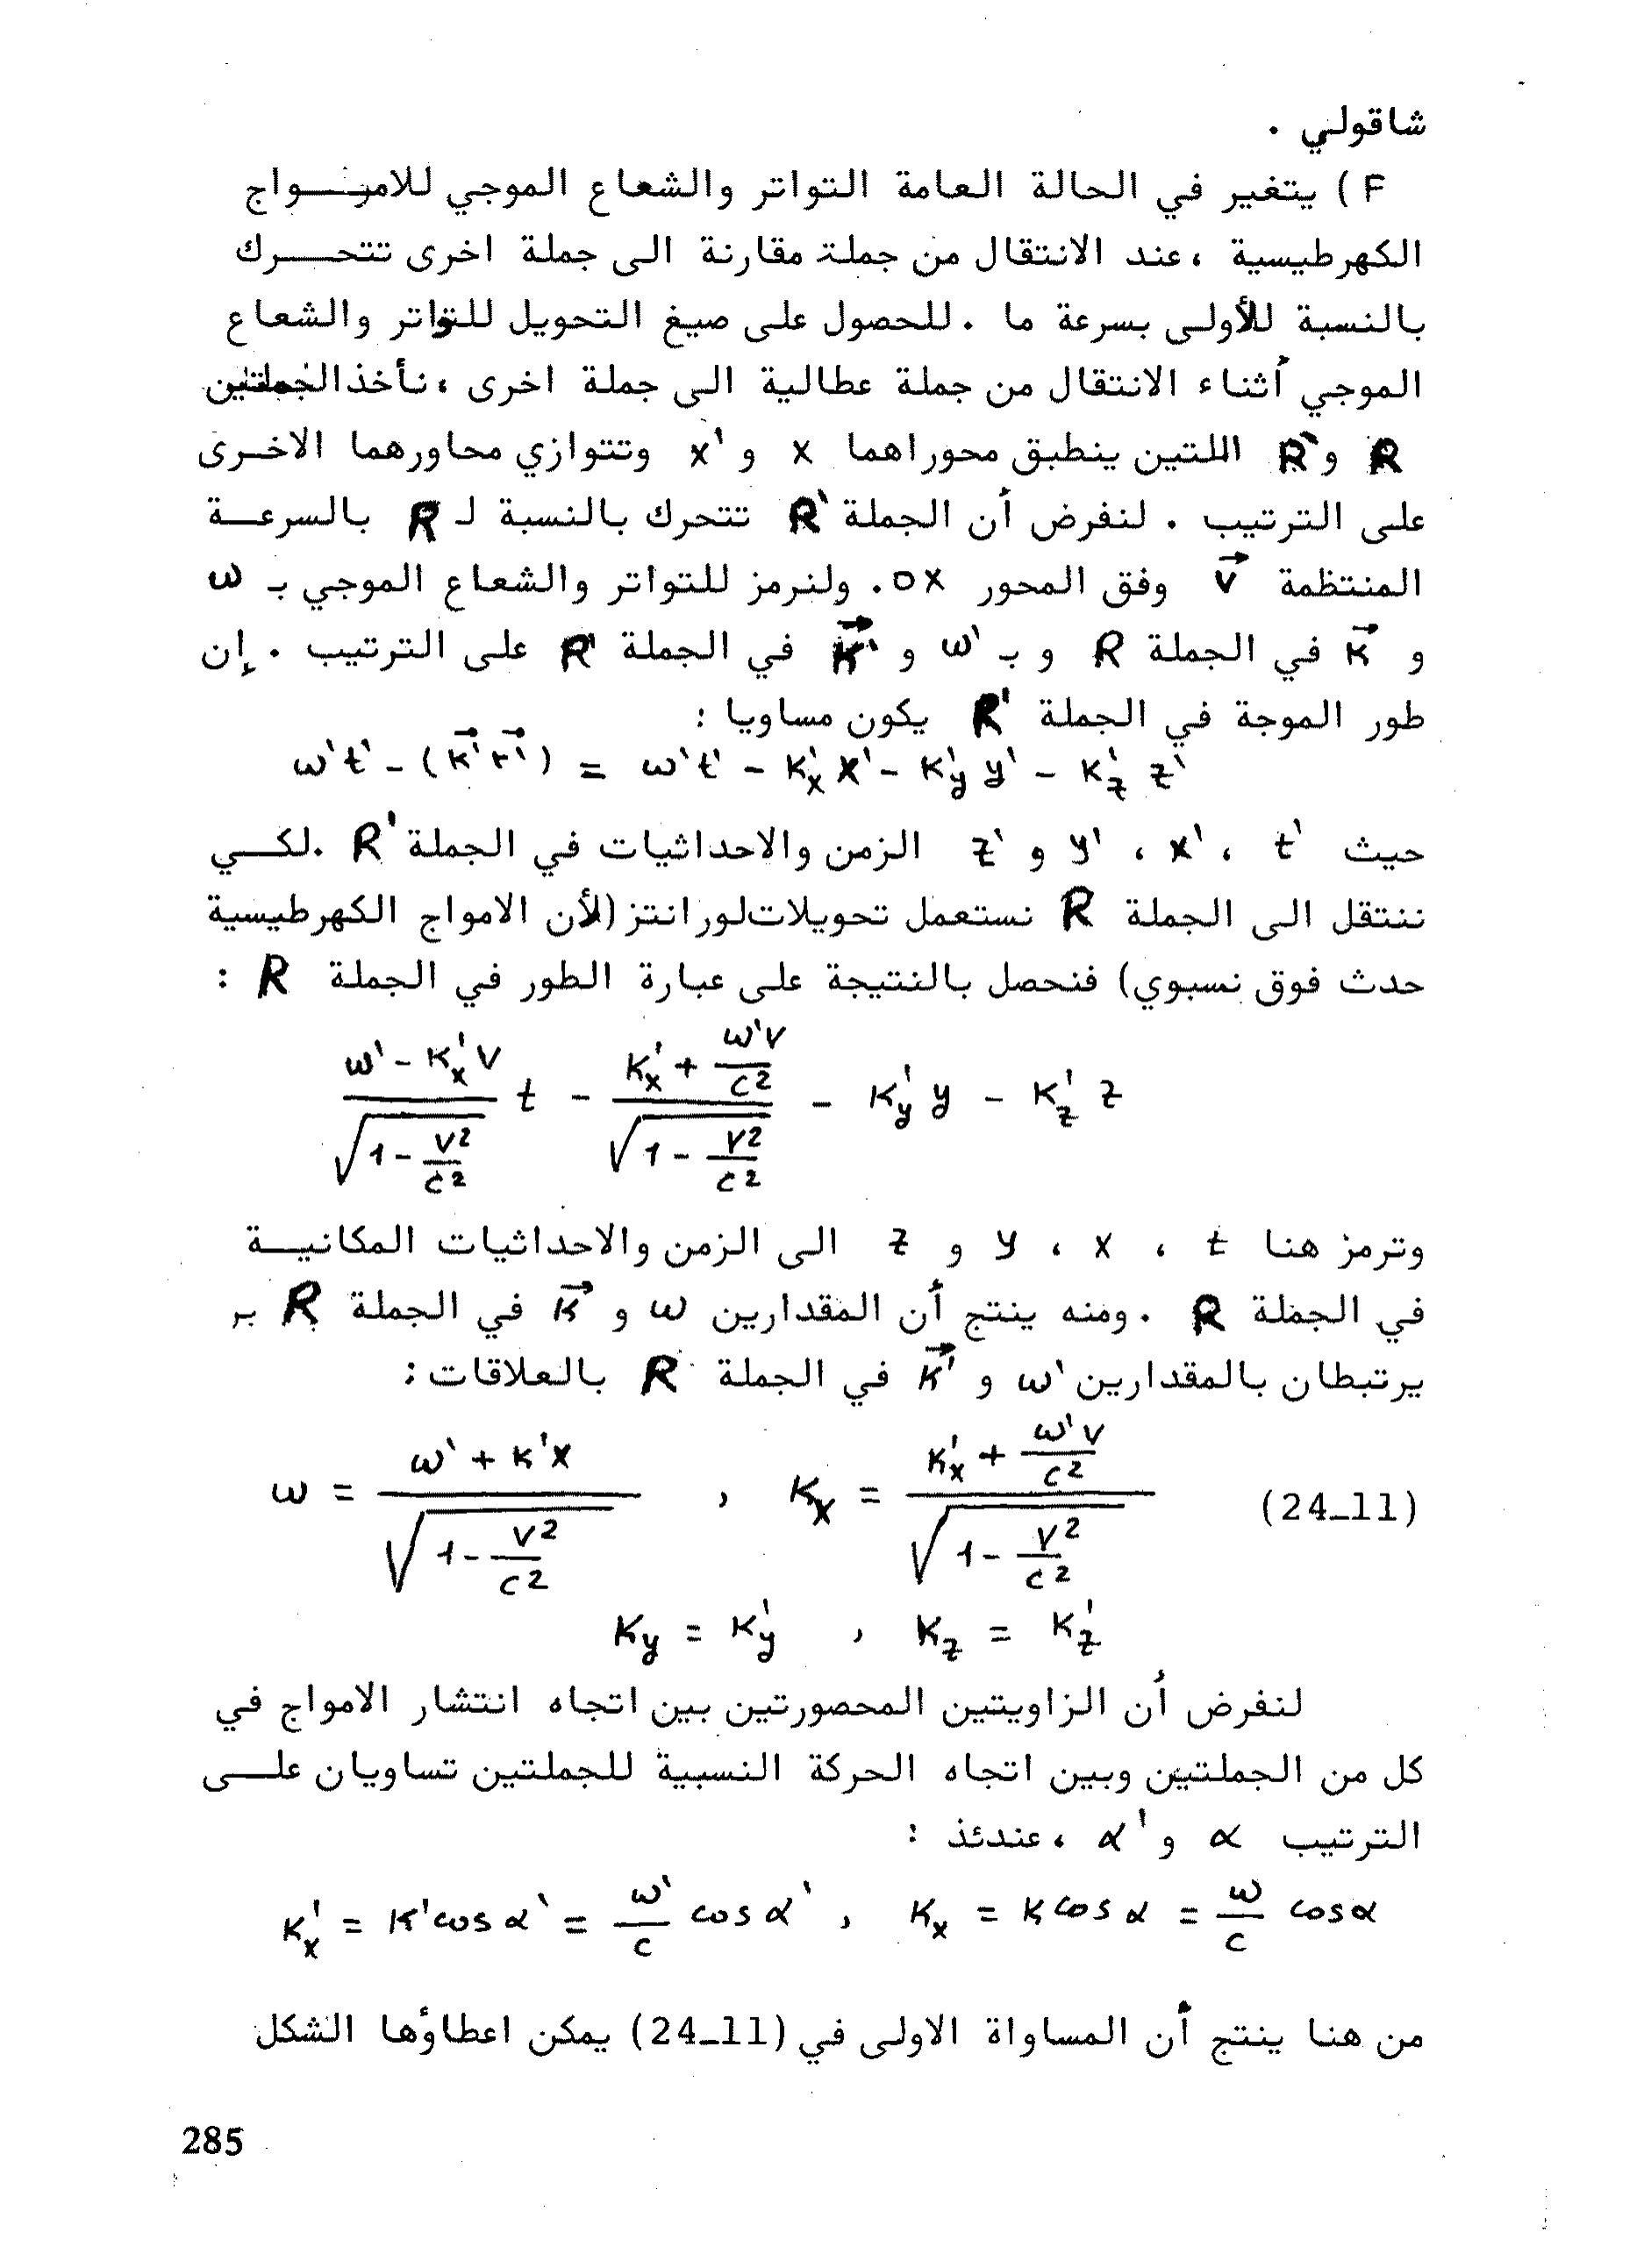 شاقولي .
F ) يتغير في الحالة العامة التواتر والشعاع الموجي للامـــواج
الكهرطيسية ،عند الانتقال من جملة مقارنة الى جملة اخرى تتحـــرك
بالنسبة للأولى بسرعة ما . للحصول على صيغ التحويل للتواتر والشعاع
الموجي أثناء الانتقال من جملة عطالية الى جملة اخرى ،نأخذالجملتين
R و R' اللتين ينطبق محوراهما x و x' وتتوازي محاورهما الاخـرى
على الترتيب . لنفرض أن الجملة R' تتحرك بالنسبة لـ R بالسرعــة
المنتظمة v⃗ وفق المحور ox. ولنرمز للتواتر والشعاع الموجي بـ ω
و K⃗ في الجملة R و بـ ω' و K⃗' في الجملة R' على الترتيب . إن
طور الموجة في الجملة R' يكون مساويا :
ω't' - (K⃗'r⃗') = ω't' - K'ₓ x' - K'_y y' - K'_z z'
حيث t' ، x' ، y' و z' الزمن والاحداثيات في الجملة R' .لكـــي
ننتقل الى الجملة R نستعمل تحويلاتلورانتز (لأن الامواج الكهرطيسية
حدث فوق نسبوي) فنحصل بالنتيجة على عبارة الطور في الجملة R :
(ω' - K'ₓ V)/√(1 - V²/c²) t - (K'ₓ + ω'V/c²)/√(1 - V²/c²) - K'_y y - K'_z z
وترمز هنا t ، x ، y و z الى الزمن والاحداثيات المكانيــة
في الجملة R . ومنه ينتج أن المقدارين ω و K⃗ في الجملة R بر
يرتبطان بالمقدارين ω' و K⃗' في الجملة R بالعلاقات :
ω = (ω' + K'x)/√(1 - V²/c²) , Kₓ = (K'ₓ + ω'V/c²)/√(1 - V²/c²) (24_11)
K_y = K'_y , K_z = K'_z
لنفرض أن الزاويتين المحصورتين بين اتجاه انتشار الامواج في
كل من الجملتين وبين اتجاه الحركة النسبية للجملتين تساويان علــى
الترتيب α و α' ،عندئذ :
K'ₓ = K'cos α' = ω'/c cos α' , Kₓ = K cos α = ω/c cos α
من هنا ينتج أن المساواة الاولى في (24_11) يمكن اعطاؤها الشكل
285